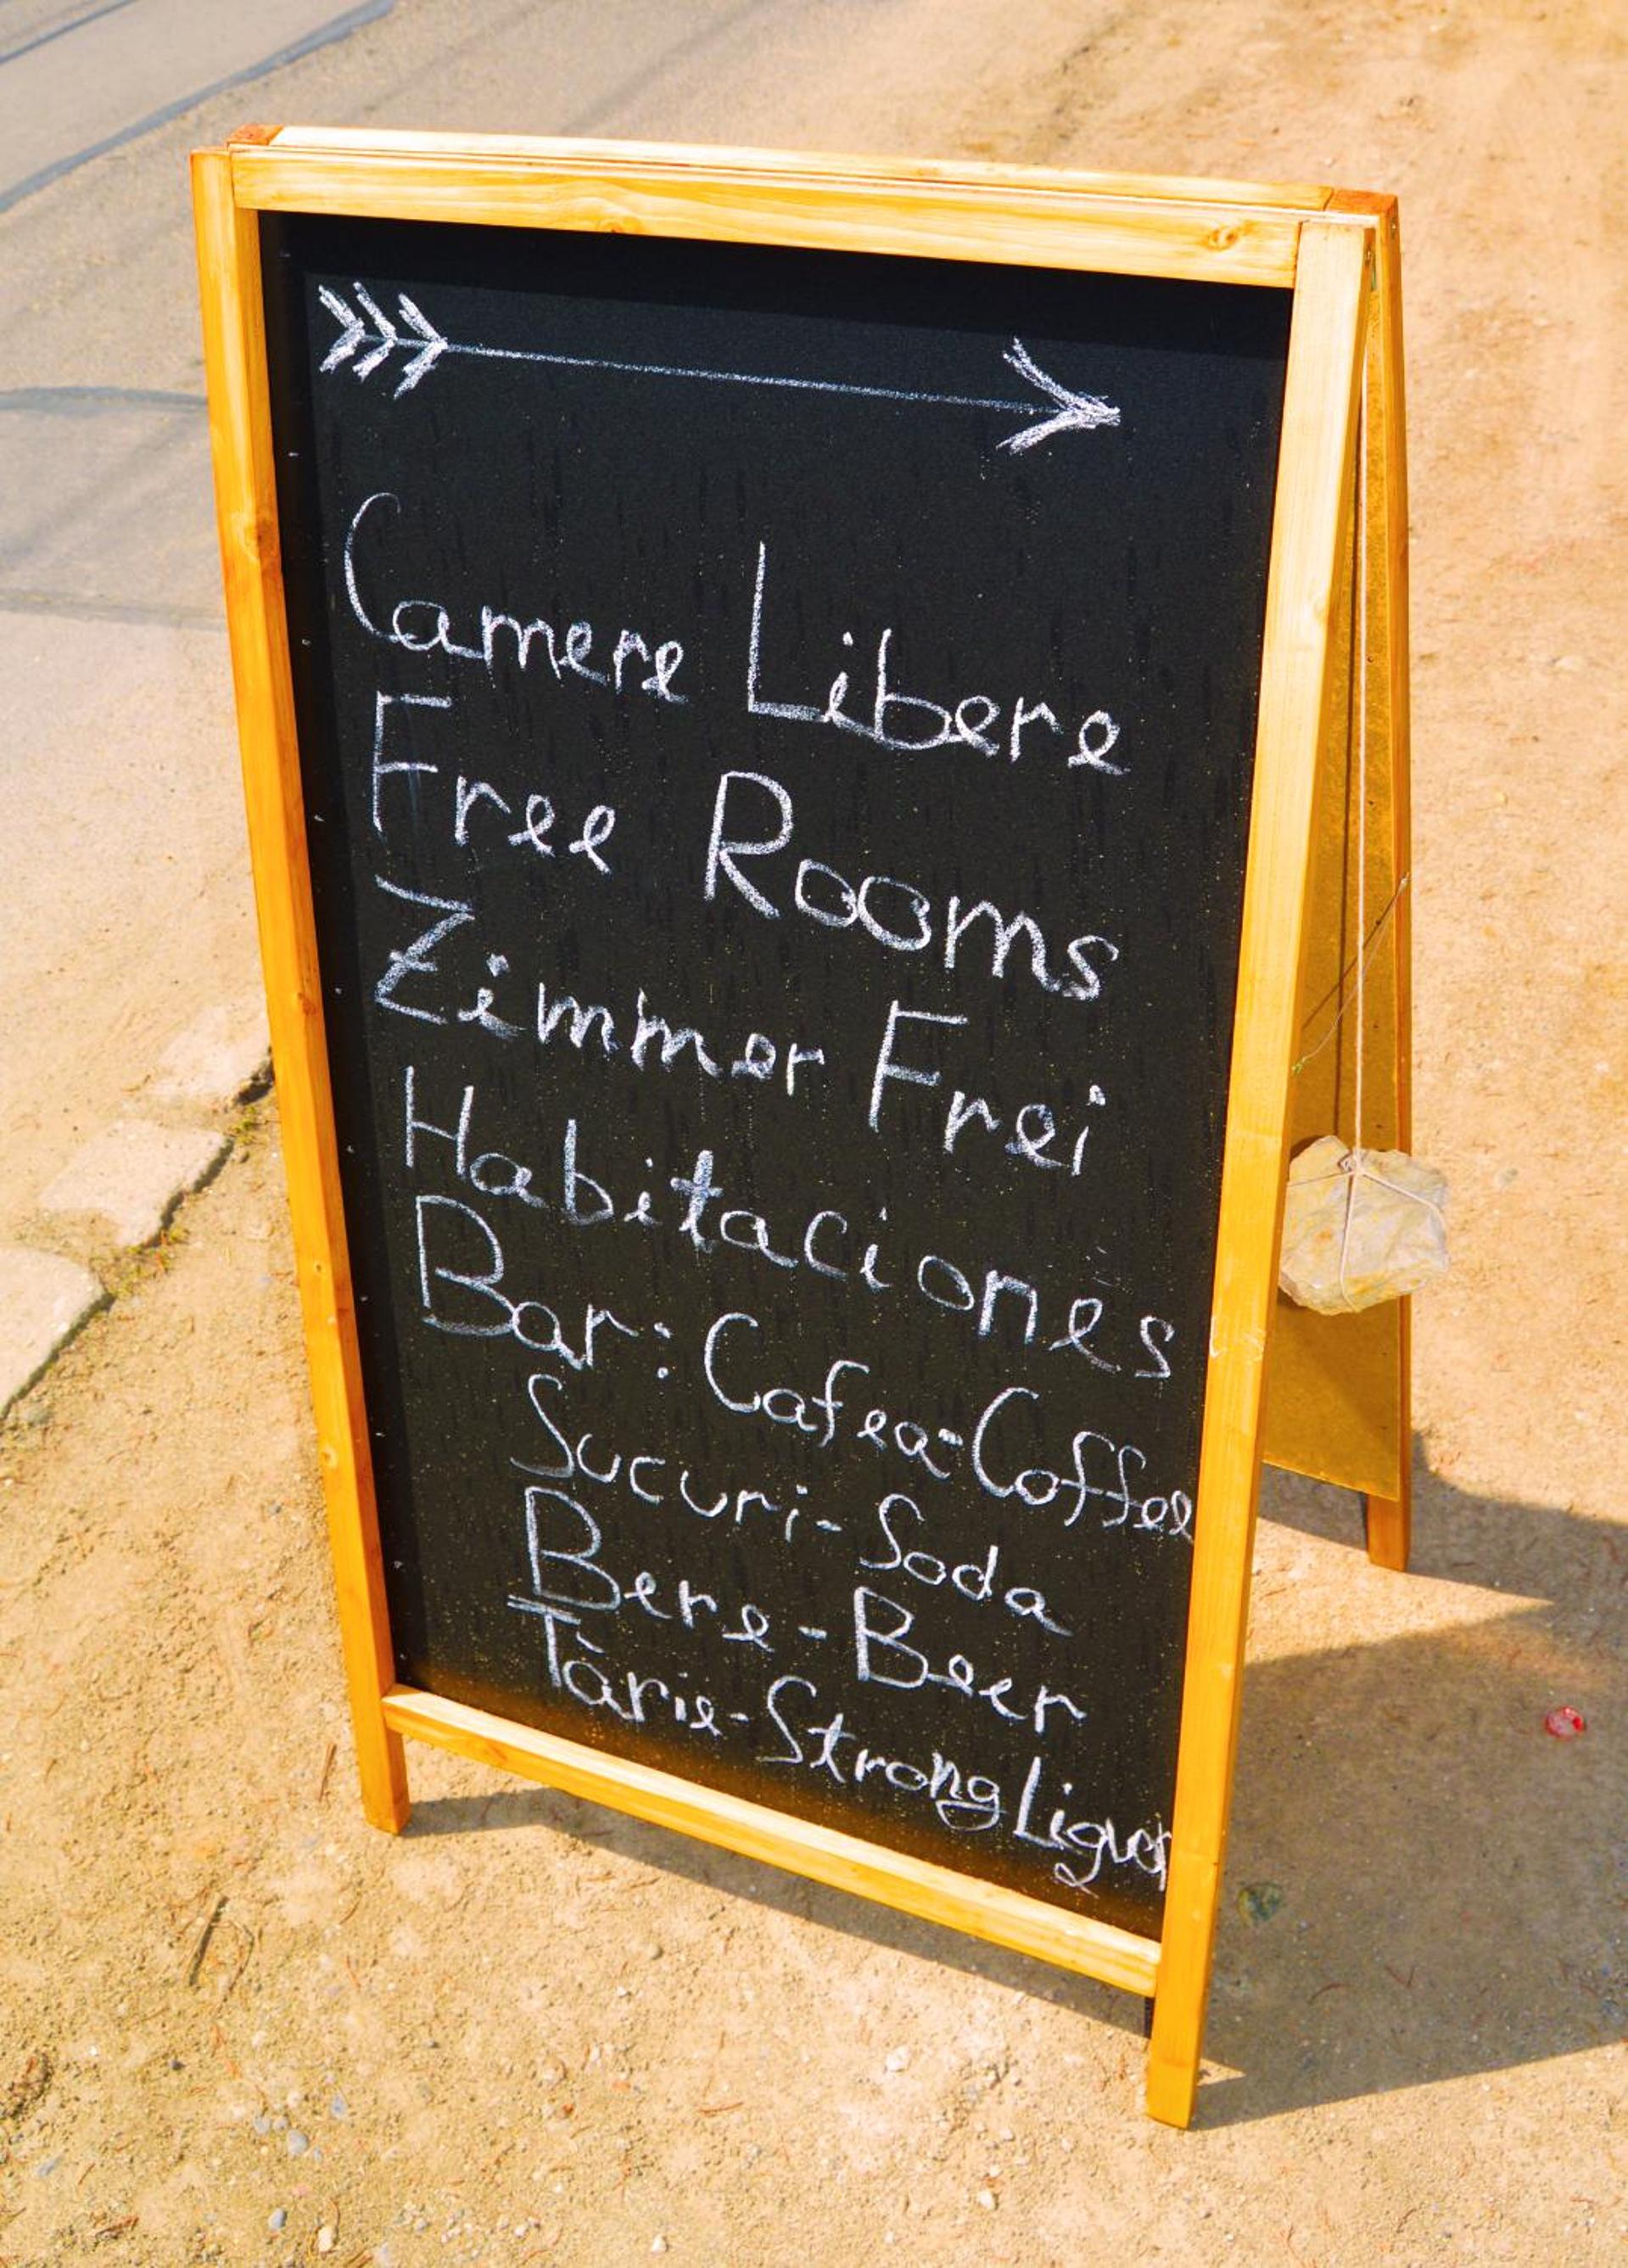 Camere Libere
Free Rooms
Zimmer Frei
Habitaciones
Bar: Cafea-Coffee
Sucuri-Soda
Bere-Beer
Tărie-Strong Liguor